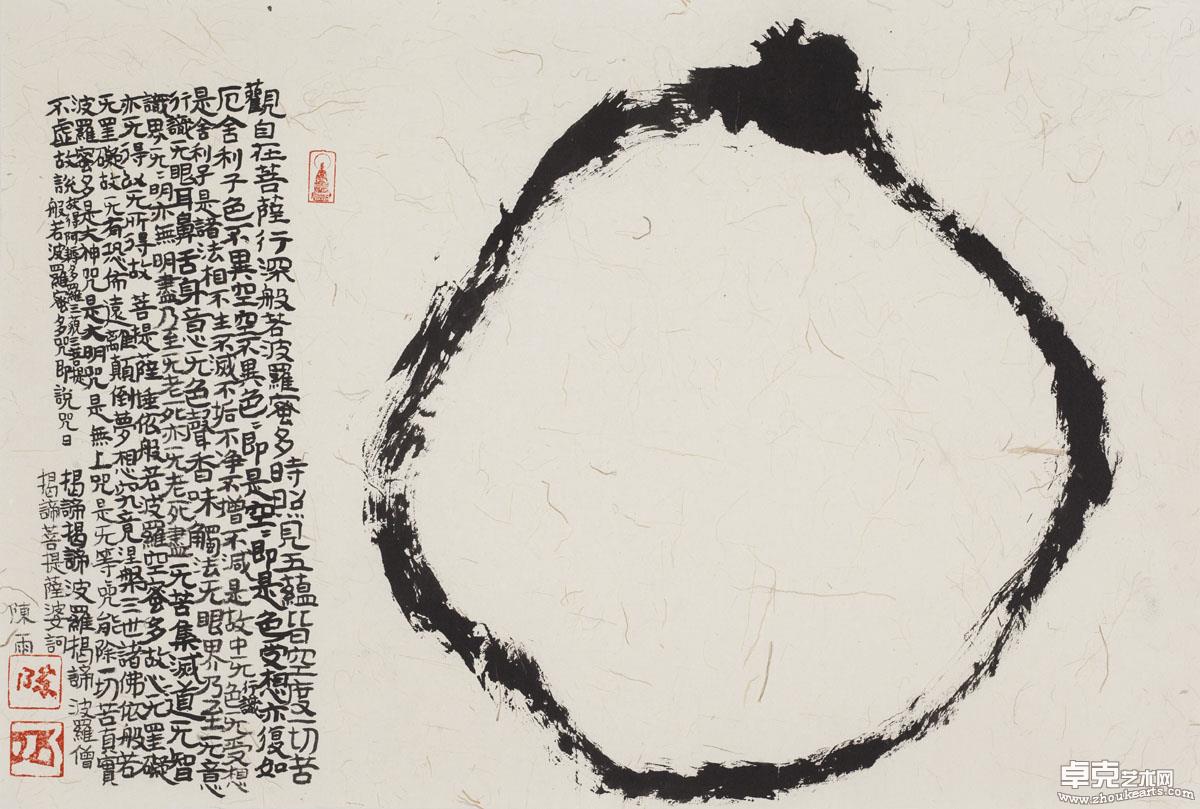 觀自在菩薩行深般若波羅蜜多時照見五蘊皆空度一切苦
厄舍利子色不異空空不異色色即是空空即是色受想亦復如
是舍利子是諸法相不生不滅不垢不净不增不減是故中无色无受想
行識无眼耳鼻舌身意无色聲香味觸法无眼界乃至无意
識界无无明亦無明盡乃至无老死亦无老死盡无苦集滅道无智
亦无得以无所得故菩提薩埵依般若波羅蜜多故心无罣礙
无罣礙故无有恐怖遠離顛倒夢想究竟涅槃三世諸佛依般若
波羅蜜多故得阿耨多羅三藐三菩提
是大神咒是大明咒是無上咒是无等咒能除一切苦真實
不虛故說般若波羅蜜多咒即說咒曰
揭諦揭諦波羅揭諦波羅僧
揭諦菩提薩婆訶
陳雨
卓克艺术网
www.zhoukearts.com